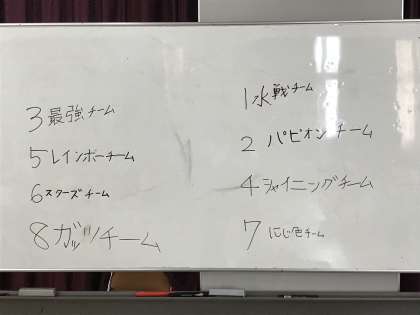 3 最強チーム
5 レインボーチーム
6 スターズチーム
8 ガッツチーム
1 水戦チーム
2 パピオンチーム
4 シャイニングチーム
7 にじ色チーム